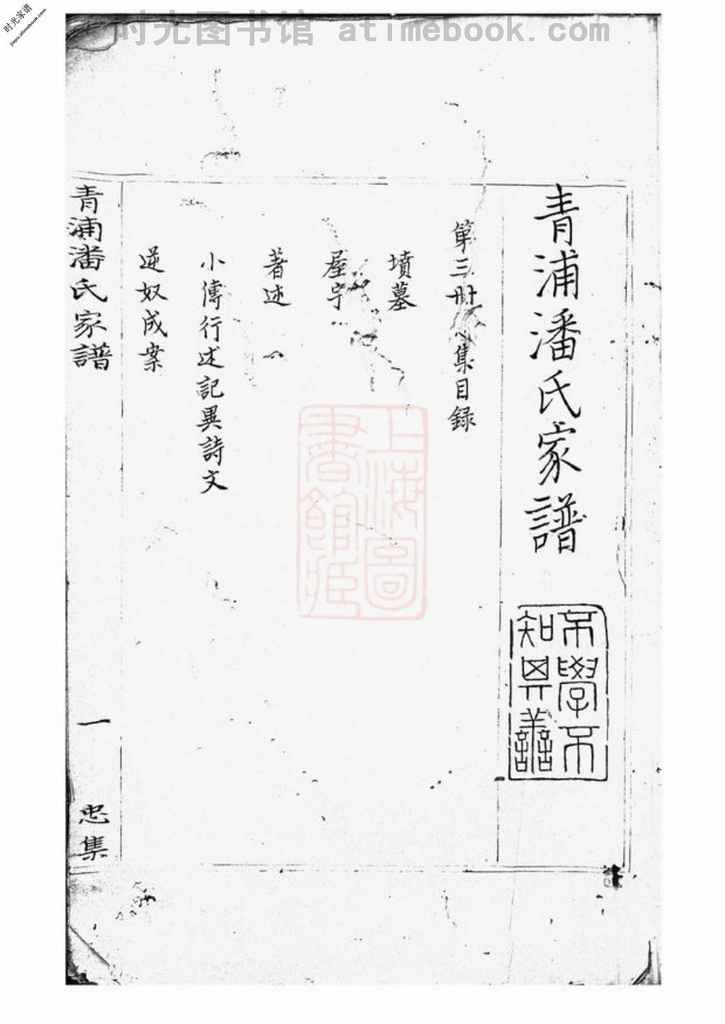 时光图书馆 atimebook.com
时光家谱
青浦潘氏家譜
不學不
知其善
第三冊忠集目錄
墳墓
屋宇
著述
小傳行述記異詩文
逆奴成案
青浦潘氏家譜
一
忠集
上海圖
書館藏